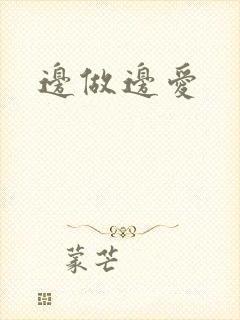 邊做邊愛
蒙芒